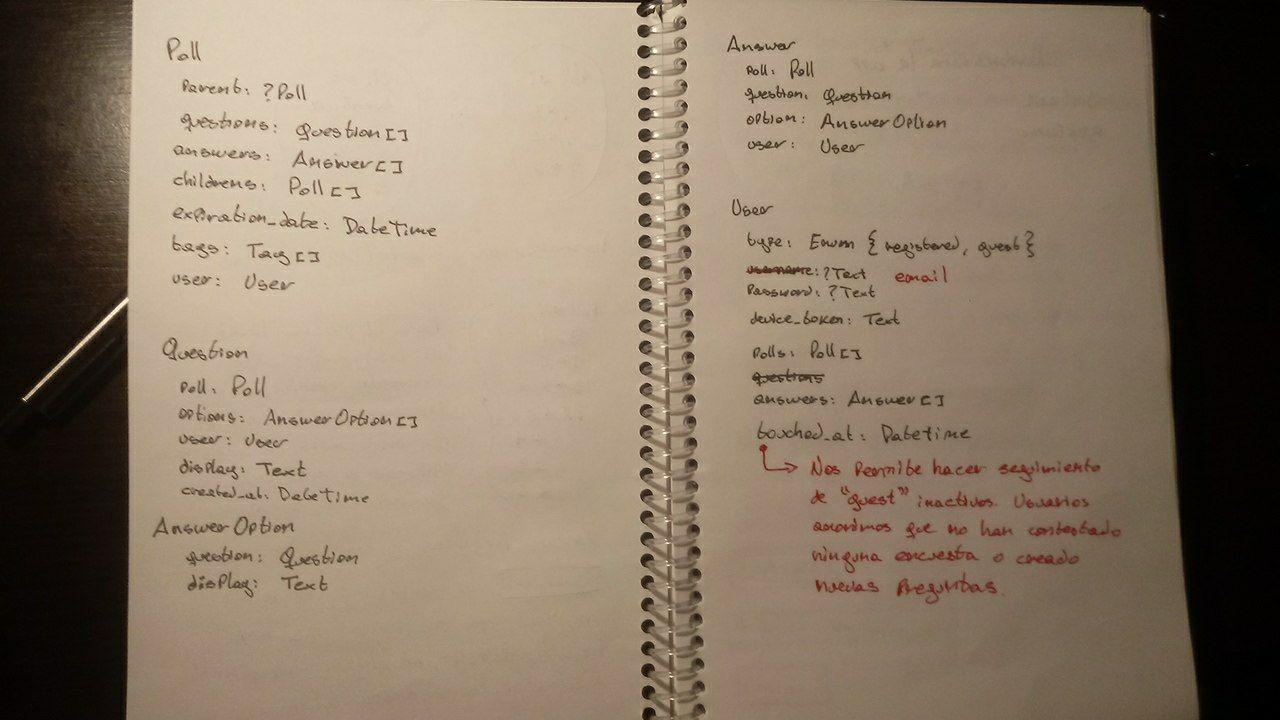 Poll
Parent: ?Poll
questions: Question[]
answers: Answer[]
childrens: Poll[]
expiration_date: DateTime
tags: Tag[]
user: User
Question
Poll: Poll
options: AnswerOption[]
user: User
display: Text
created_at: DateTime
AnswerOption
question: Question
display: Text
Answer
Poll: Poll
question: Question
option: AnswerOption
user: User
User
type: Enum { registered, guest }
username: ?Text email
Password: ?Text
device_token: Text
Polls: Poll[]
questions
answers: Answer[]
touched_at: Datetime
Nos Permite hacer seguimiento
de "guest" inactivos. Usuarios
anonimos que no han contestado
ninguna encuesta o creado
nuevas Preguntas.